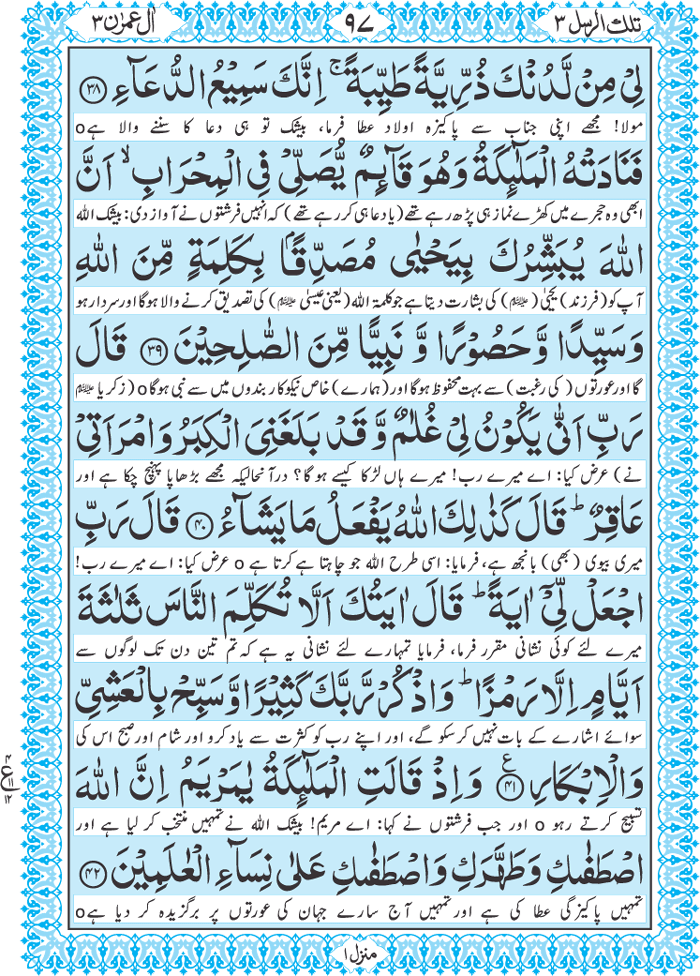 تلك الرسل ٣
٩٧
اٰل عمرٰن ٣
لِىْ مِنْ لَّدُنْكَ ذُرِّيَّةً طَيِّبَةً ۚ اِنَّكَ سَمِيْعُ الدُّعَآءِ ﴿۳۸﴾
مولا! مجھے اپنی جناب سے پاکیزہ اولاد عطا فرما، بیشک تو ہی دعا کا سننے والا ہے o
فَنَادَتْهُ الْمَلٰٓئِكَةُ وَهُوَ قَآئِمٌ يُّصَلِّىْ فِى الْمِحْرَابِ ۙ اَنَّ
ابھی وہ حجرے میں کھڑے نماز ہی پڑھ رہے تھے (یا دعا ہی کر رہے تھے) کہ انہیں فرشتوں نے آواز دی: بیشک اللہ
اللّٰهَ يُبَشِّرُكَ بِيَحْيٰى مُصَدِّقًۢا بِكَلِمَةٍ مِّنَ اللّٰهِ
آپ کو (فرزند) یحییٰ (ﷺ) کی بشارت دیتا ہے جو کلمۃ اللہ (یعنی عیسیٰ ﷺ) کی تصدیق کرنے والا ہوگا اور سردار ہو
وَسَيِّدًا وَّحَصُوْرًا وَّنَبِيًّا مِّنَ الصّٰلِحِيْنَ ﴿۳۹﴾ قَالَ
گا اور عورتوں (کی رغبت) سے بہت محفوظ ہوگا اور (ہمارے) خاص نیکوکار بندوں میں سے نبی ہوگا o (زکریا ﷺ
رَبِّ اَنّٰى يَكُوْنُ لِىْ غُلٰمٌ وَّقَدْ بَلَغَنِىَ الْكِبَرُ وَامْرَاَتِىْ
نے) عرض کیا: اے میرے رب! میرے ہاں لڑکا کیسے ہو گا؟ درآنحالیکہ مجھے بڑھاپا پہنچ چکا ہے اور
عَاقِرٌ ؕ قَالَ كَذٰلِكَ اللّٰهُ يَفْعَلُ مَا يَشَآءُ ﴿۴۰﴾ قَالَ رَبِّ
میری بیوی (بھی) بانجھ ہے، فرمایا: اسی طرح اللہ جو چاہتا ہے کرتا ہے o عرض کیا: اے میرے رب!
اجْعَلْ لِّىْٓ اٰيَةً ؕ قَالَ اٰيَتُكَ اَلَّا تُكَلِّمَ النَّاسَ ثَلٰثَةَ
میرے لئے کوئی نشانی مقرر فرما، فرمایا تمہارے لئے نشانی یہ ہے کہ تم تین دن تک لوگوں سے
اَيَّامٍ اِلَّا رَمْزًا ؕ وَاذْكُرْ رَّبَّكَ كَثِيْرًا وَّسَبِّحْ بِالْعَشِىِّ
سوائے اشارے کے بات نہیں کر سکو گے، اور اپنے رب کو کثرت سے یاد کرو اور شام اور صبح اس کی
وَالْاِبْكَارِ ﴿۴۱﴾ ع وَاِذْ قَالَتِ الْمَلٰٓئِكَةُ يٰمَرْيَمُ اِنَّ اللّٰهَ
تسبیح کرتے رہو o اور جب فرشتوں نے کہا: اے مریم! بیشک اللہ نے تمہیں منتخب کر لیا ہے اور
اصْطَفٰىكِ وَطَهَّرَكِ وَاصْطَفٰىكِ عَلٰى نِسَآءِ الْعٰلَمِيْنَ ﴿۴۲﴾
تمہیں پاکیزگی عطا کی ہے اور تمہیں آج سارے جہان کی عورتوں پر برگزیدہ کر دیا ہے o
منزل ۱